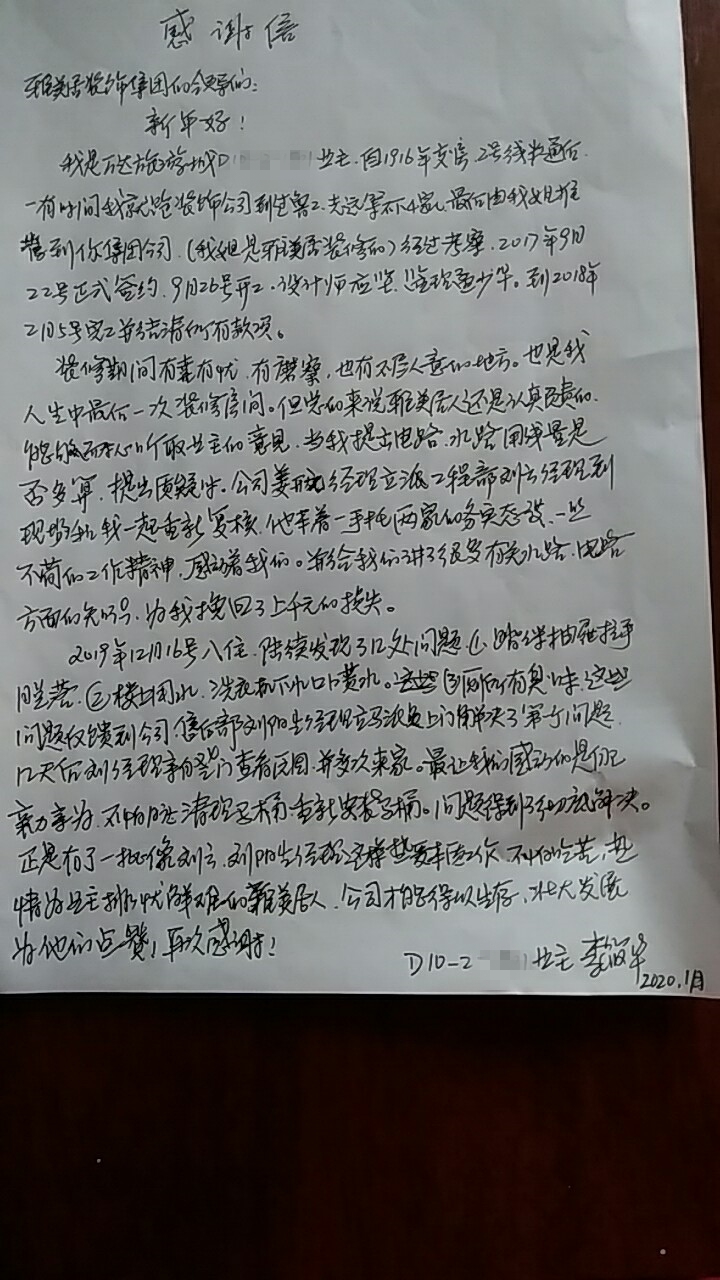 感谢信
雅美居装饰集团的领导们:
新年好!
我是万达旅游城D 业主.自1916年交房.2号线半通后.
一有时间我就跑装饰公司到生第2.先远军不4家.最后由我姐推
誉到你集团公司.(我姐是雅美居装修的)经过考察.2017年9月
22号正式签约.9月26号开工.设计师应坚.监理过少华。到2018年
2月5号完工并结清所有款项。
装修期间有喜有忧.有磨察,也有不尽人意的地方。也是我
人生中最后一次装修房间。但总的来说雅美居人还是认真负责的.
能够耐心听取业主的意见.当我提出电路.水路用线量是
否多算,提出质疑时.公司姜 经理立派工程部刘云经理到
现场和我一起重新复核.他本着一手托两家的务实态度.一丝
不苟的工作精神,感动着我们。并给我们讲了很多有关水路.电路
方面的知识,为我挽回了上千元的损失。
2019年12月16号入住.陆续发现了几处问题①.踏 抽屉拉手
脱落.②楼上困水.洗衣机下水口冒黄水。这些③两所有臭味.这些
问题反馈到公司.售后部刘阳生经理立马派员上门解决了第一个问题.
几天后刘经理亲自登门查看原因.并多次来家。最让我们感动的是他
亲力亲为.不怕脏清理马桶.重新安装马桶。问题得到了彻底解决。
正是有了一批像刘云.刘阳生经理这样热爱本职工作.不怕吃苦,热
情为业主排忧解难的雅美居人.公司才能得以生存,壮大发展
为他们点赞!再次感谢!
D10-2 业主 李筱华
2020.1月